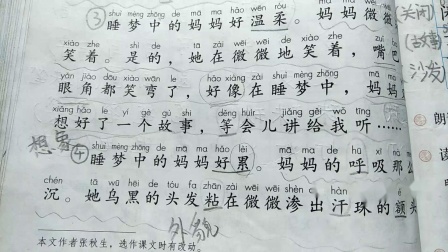 ③ shuì mèng zhōng de mā ma hǎo wēn róu mā ma wēi wēi
睡梦中的妈妈好温柔。妈妈微微 (关闭)
xiào zhe shì de tā zài wēi wēi de xiào zhe zuǐ
笑着。是的，她在微微地笑着，嘴巴
沙发
yǎn jiǎo dōu xiào wān le hǎo xiàng zài shuì mèng zhōng mā ma
眼角都笑弯了，好像在睡梦中，妈妈
xiǎng hǎo le yí gè gù shi děng huìr jiǎng gěi wǒ tīng
想好了一个故事，等会儿讲给我听…… 朗
想
④ shuì mèng zhōng de mā ma hǎo lèi mā ma de hū xī nà
睡梦中的妈妈好累。妈妈的呼吸那么 读
chén tā wū hēi de tóu fa zhān zài wēi wēi shèn hàn é
沉。她乌黑的头发粘在微微渗出汗珠的额头
外貌
本文作者张秋生，选作课文时有改动。